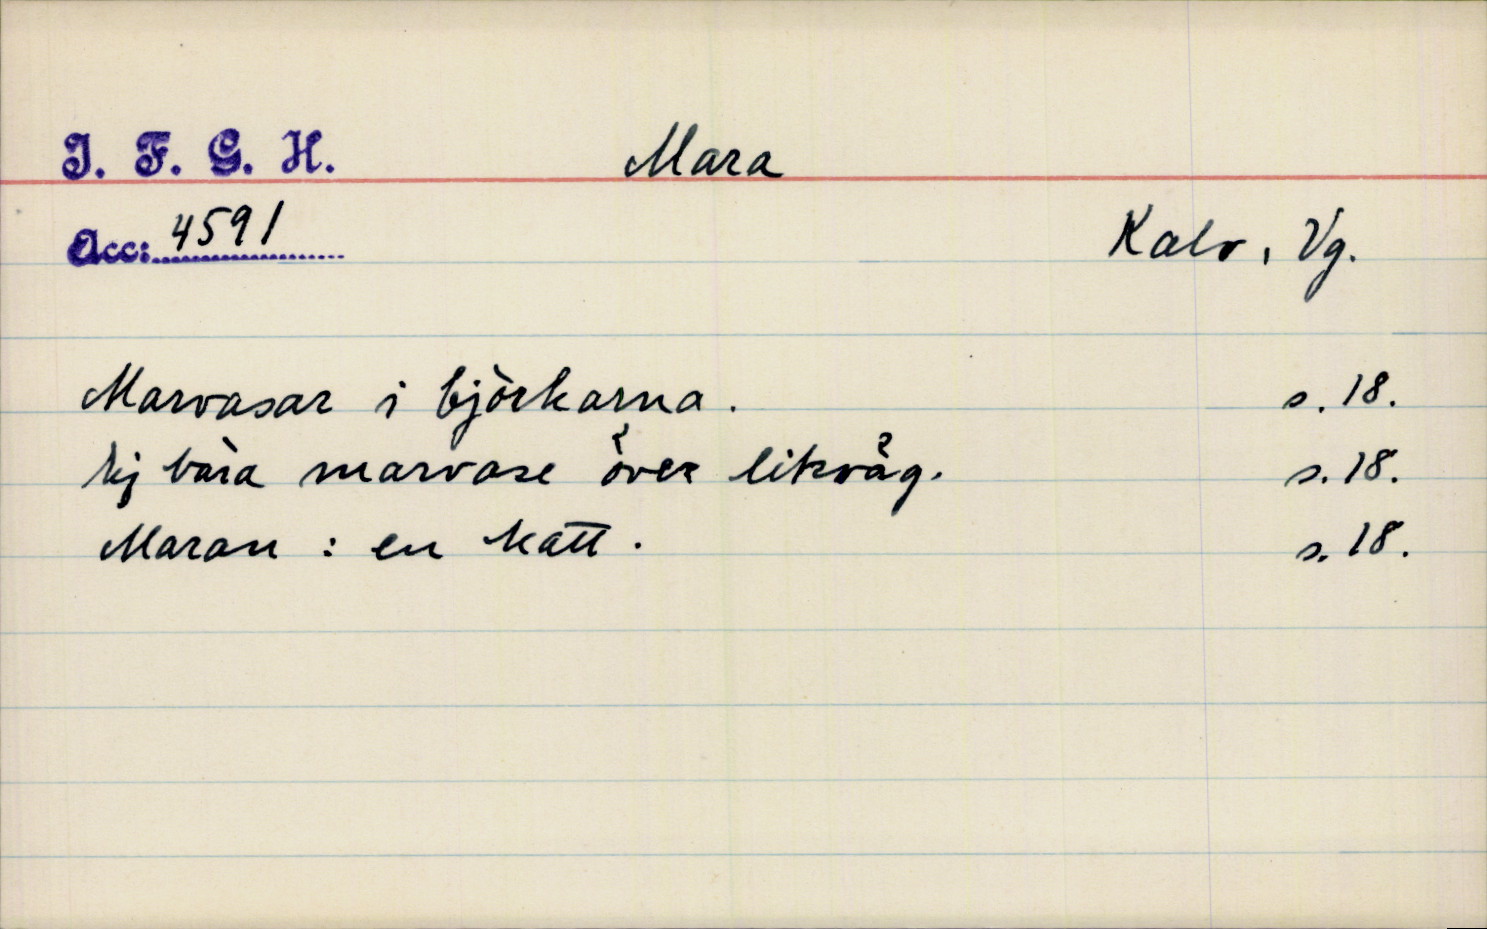 I. F. G. H.
Mara
Acc: 4591
Kalv, Vg.
Marvasar i björkarna. s. 18.
Ej bära marvase över likväg. s. 18.
Maran: en katt. s. 18.